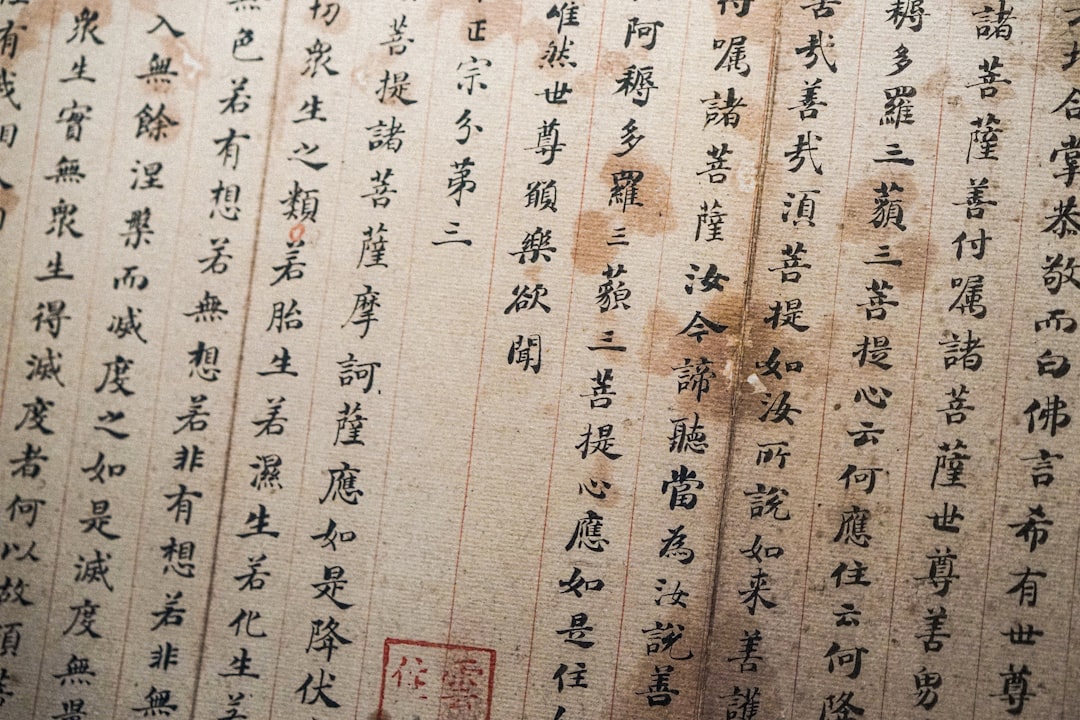 地合掌恭敬而白佛言希有世尊
諸菩薩善付囑諸菩薩世尊善男
耨多羅三藐三菩提心云何應住云何降
善哉善哉須菩提如汝所說如来善護
付囑諸菩薩汝今諦聽當為汝說善
阿耨多羅三藐三菩提心應如是住
唯然世尊願樂欲聞
正宗分第三
菩提諸菩薩摩訶薩應如是降伏
切衆生之類若胎生若濕生若化生若
無色若有想若無想若非有想若非無
入無餘涅槃而滅度之如是滅度無量
衆生實無衆生得滅度者何以故須菩
有我相人
雲住